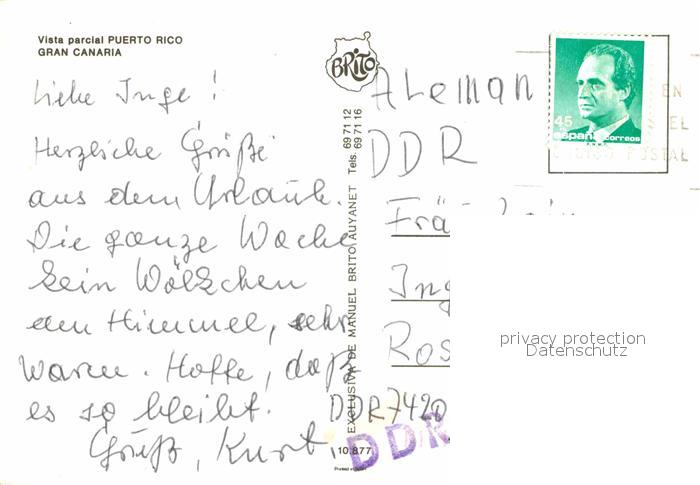 Vista parcial PUERTO RICO
GRAN CANARIA
Liebe Inge!
Herzliche Grüße
aus dem Urlaub.
Die ganze Woche
kein Wölkchen
am Himmel, sehr
warm. Hoffe, daß
es so bleibt.
Gruß, Kurt.
BRITO
Tels. 69 71 12
69 71 16
EXCLUSIVA DE MANUEL BRITO AUYANET
10.8.77
Printed in
Aleman
DDR
Frä
Ing
Ros
DDR 7420
DDR
45
españa correos
EN
EL
POSTAL
privacy protection
Datenschutz